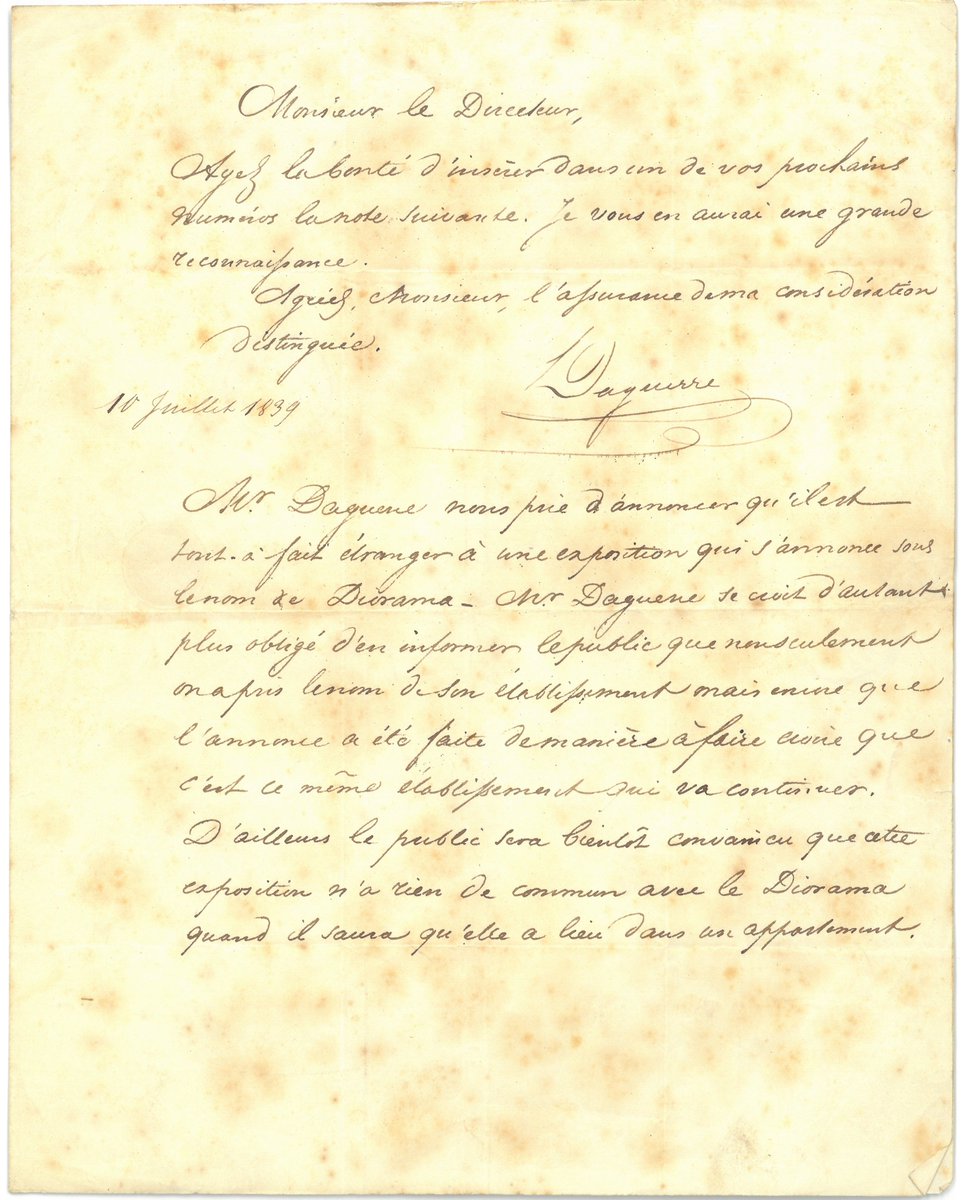 Monsieur le Directeur,
Ayez la bonté d'insérer dans un de vos prochains
numéros la note suivante. Je vous en aurai une grande
reconnaissance.
Agréez, Monsieur, l'assurance de ma considération
distinguée.
Daguerre
10 Juillet 1839
Mr. Daguerre nous prie d'annoncer qu'il est
tout-à fait étranger à une exposition qui s'annonce sous
le nom de Diorama - Mr Daguerre se croit d'autant
plus obligé d'en informer le public que non seulement
on a pris le nom de son établissement mais encore que
l'annonce a été faite de manière à faire croire que
c'est ce même établissement qui va continuer.
D'ailleurs le public sera bientôt convaincu que cette
exposition n'a rien de commun avec le Diorama
quand il saura qu'elle a lieu dans un appartement.